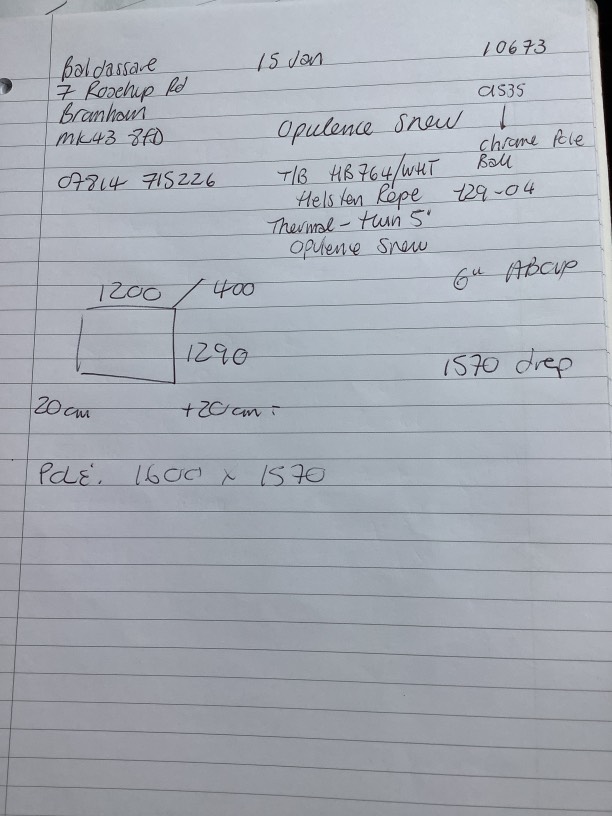 Baldassare 15 Jan 10673
7 Rosehip Rd a535
Branham
MK43 8fD Opulence Snew chrome Pole
Ball
07814 715226 T/B HB764/WHT
Helsten Rope 129-04
Thermal - twin 5"
Opulence Snew
6" ABOVP
1200 / 400
1290
1570 drep
20cm +20cm =
Pole. 1600 x 1570